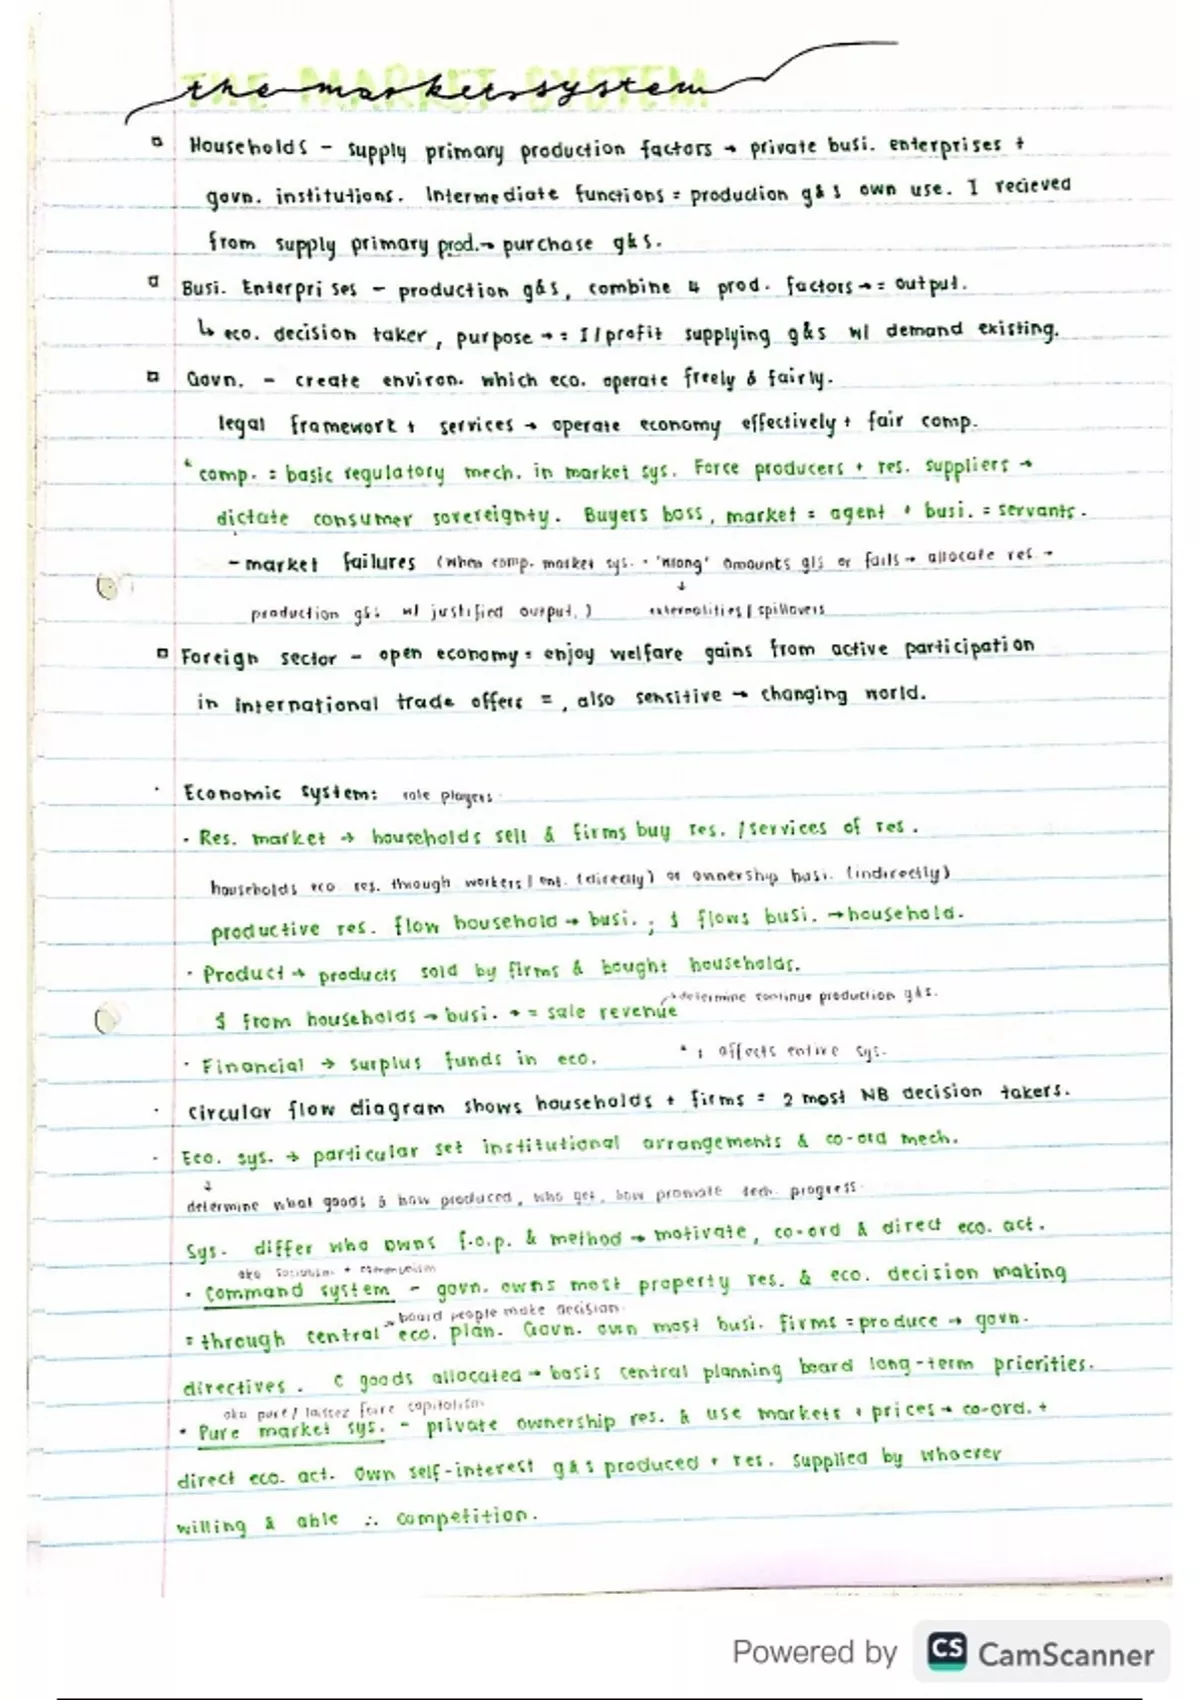 THE MARKET SYSTEM
the market system
Households - supply primary production factors → private busi. enterprises +
govn. institutions. Intermediate functions = production g&s own use. I recieved
from supply primary prod. → purchase g&s.
Busi. Enterprises - production g&s, combine 4 prod. factors → = output.
↳ eco. decision taker, purpose → = I/profit supplying g&s w/ demand existing.
Govn. - create environ. which eco. operate freely & fairly.
legal framework + services → operate economy effectively + fair comp.
* comp. = basic regulatory mech. in market sys. Force producers + res. suppliers →
dictate consumer sovereignty. Buyers boss, market = agent + busi. = servants.
- market failures (when comp. market sys. = 'wrong' amounts g&s or fails → allocate res →
↓
production g&s w/ justified output.) externalities / spillovers
Foreign sector - open economy = enjoy welfare gains from active participation
in international trade offers = , also sensitive → changing world.
· Economic system: role players
· Res. market → households sell & firms buy res. / services of res.
households eco res. through workers / ent. (directly) or ownership busi. (indirectly)
productive res. flow household → busi. ; $ flows busi. → household.
· Product → products sold by firms & bought households.
→ determine continue production g&s.
$ from households → busi. → = sale revenue
· Financial → surplus funds in eco. * ; affects entire sys.
· Circular flow diagram shows households + firms = 2 most NB decision takers.
· Eco. sys. → particular set institutional arrangements & co-ord mech.
↓
determine what goods & how produced, who get, how promote tech. progress
Sys. differ who owns f.o.p. & method → motivate, co-ord & direct eco. act.
aka socialism + communism
· Command system - govn. owns most property res. & eco. decision making
→ board people make decision
= through central eco. plan. Govn. own most busi. firms = produce → govn.
directives. C goods allocated → basis central planning board long-term priorities.
aka pure / laissez faire capitalism
· Pure market sys. - private ownership res. & use markets + prices → co-ord. +
direct eco. act. Own self-interest g&s produced + res. supplied by whoever
willing & able ∴ competition.
Powered by CS CamScanner